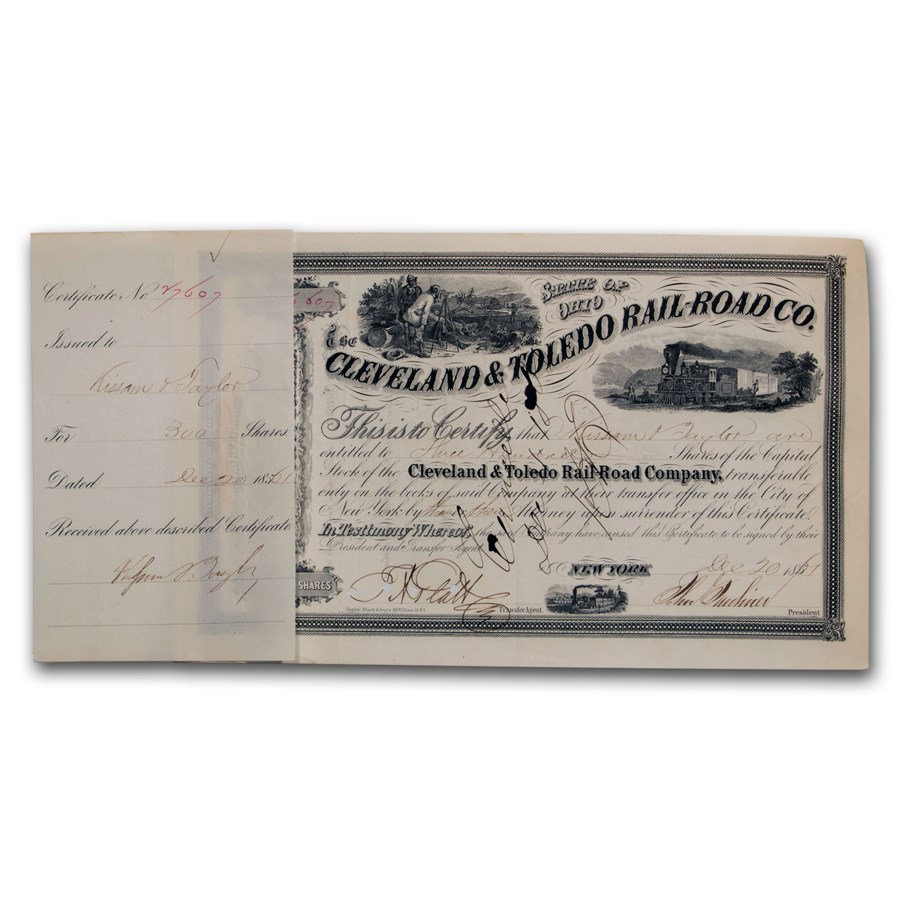 Certificate No 7607
607
Issued to
Kissam & Taylor
For 300 Shares
Dated Dec 20 1861
Received above described Certificate
SHARES
STATE OF
OHIO
THE
CLEVELAND & TOLEDO RAIL-ROAD CO.
This is to Certify that Kissam & Taylor are
entitled to Three Hundred Shares of the Capital
Stock of the Cleveland & Toledo Rail-Road Company, transferable
only on the books of said Company at their transfer office in the City of
New York by Attorney upon surrender of this Certificate.
In Testimony Whereof, the Company have caused this Certificate to be signed by their
President and Transfer Agent
NEW YORK Dec 20 1861
Transfer Agent.
President